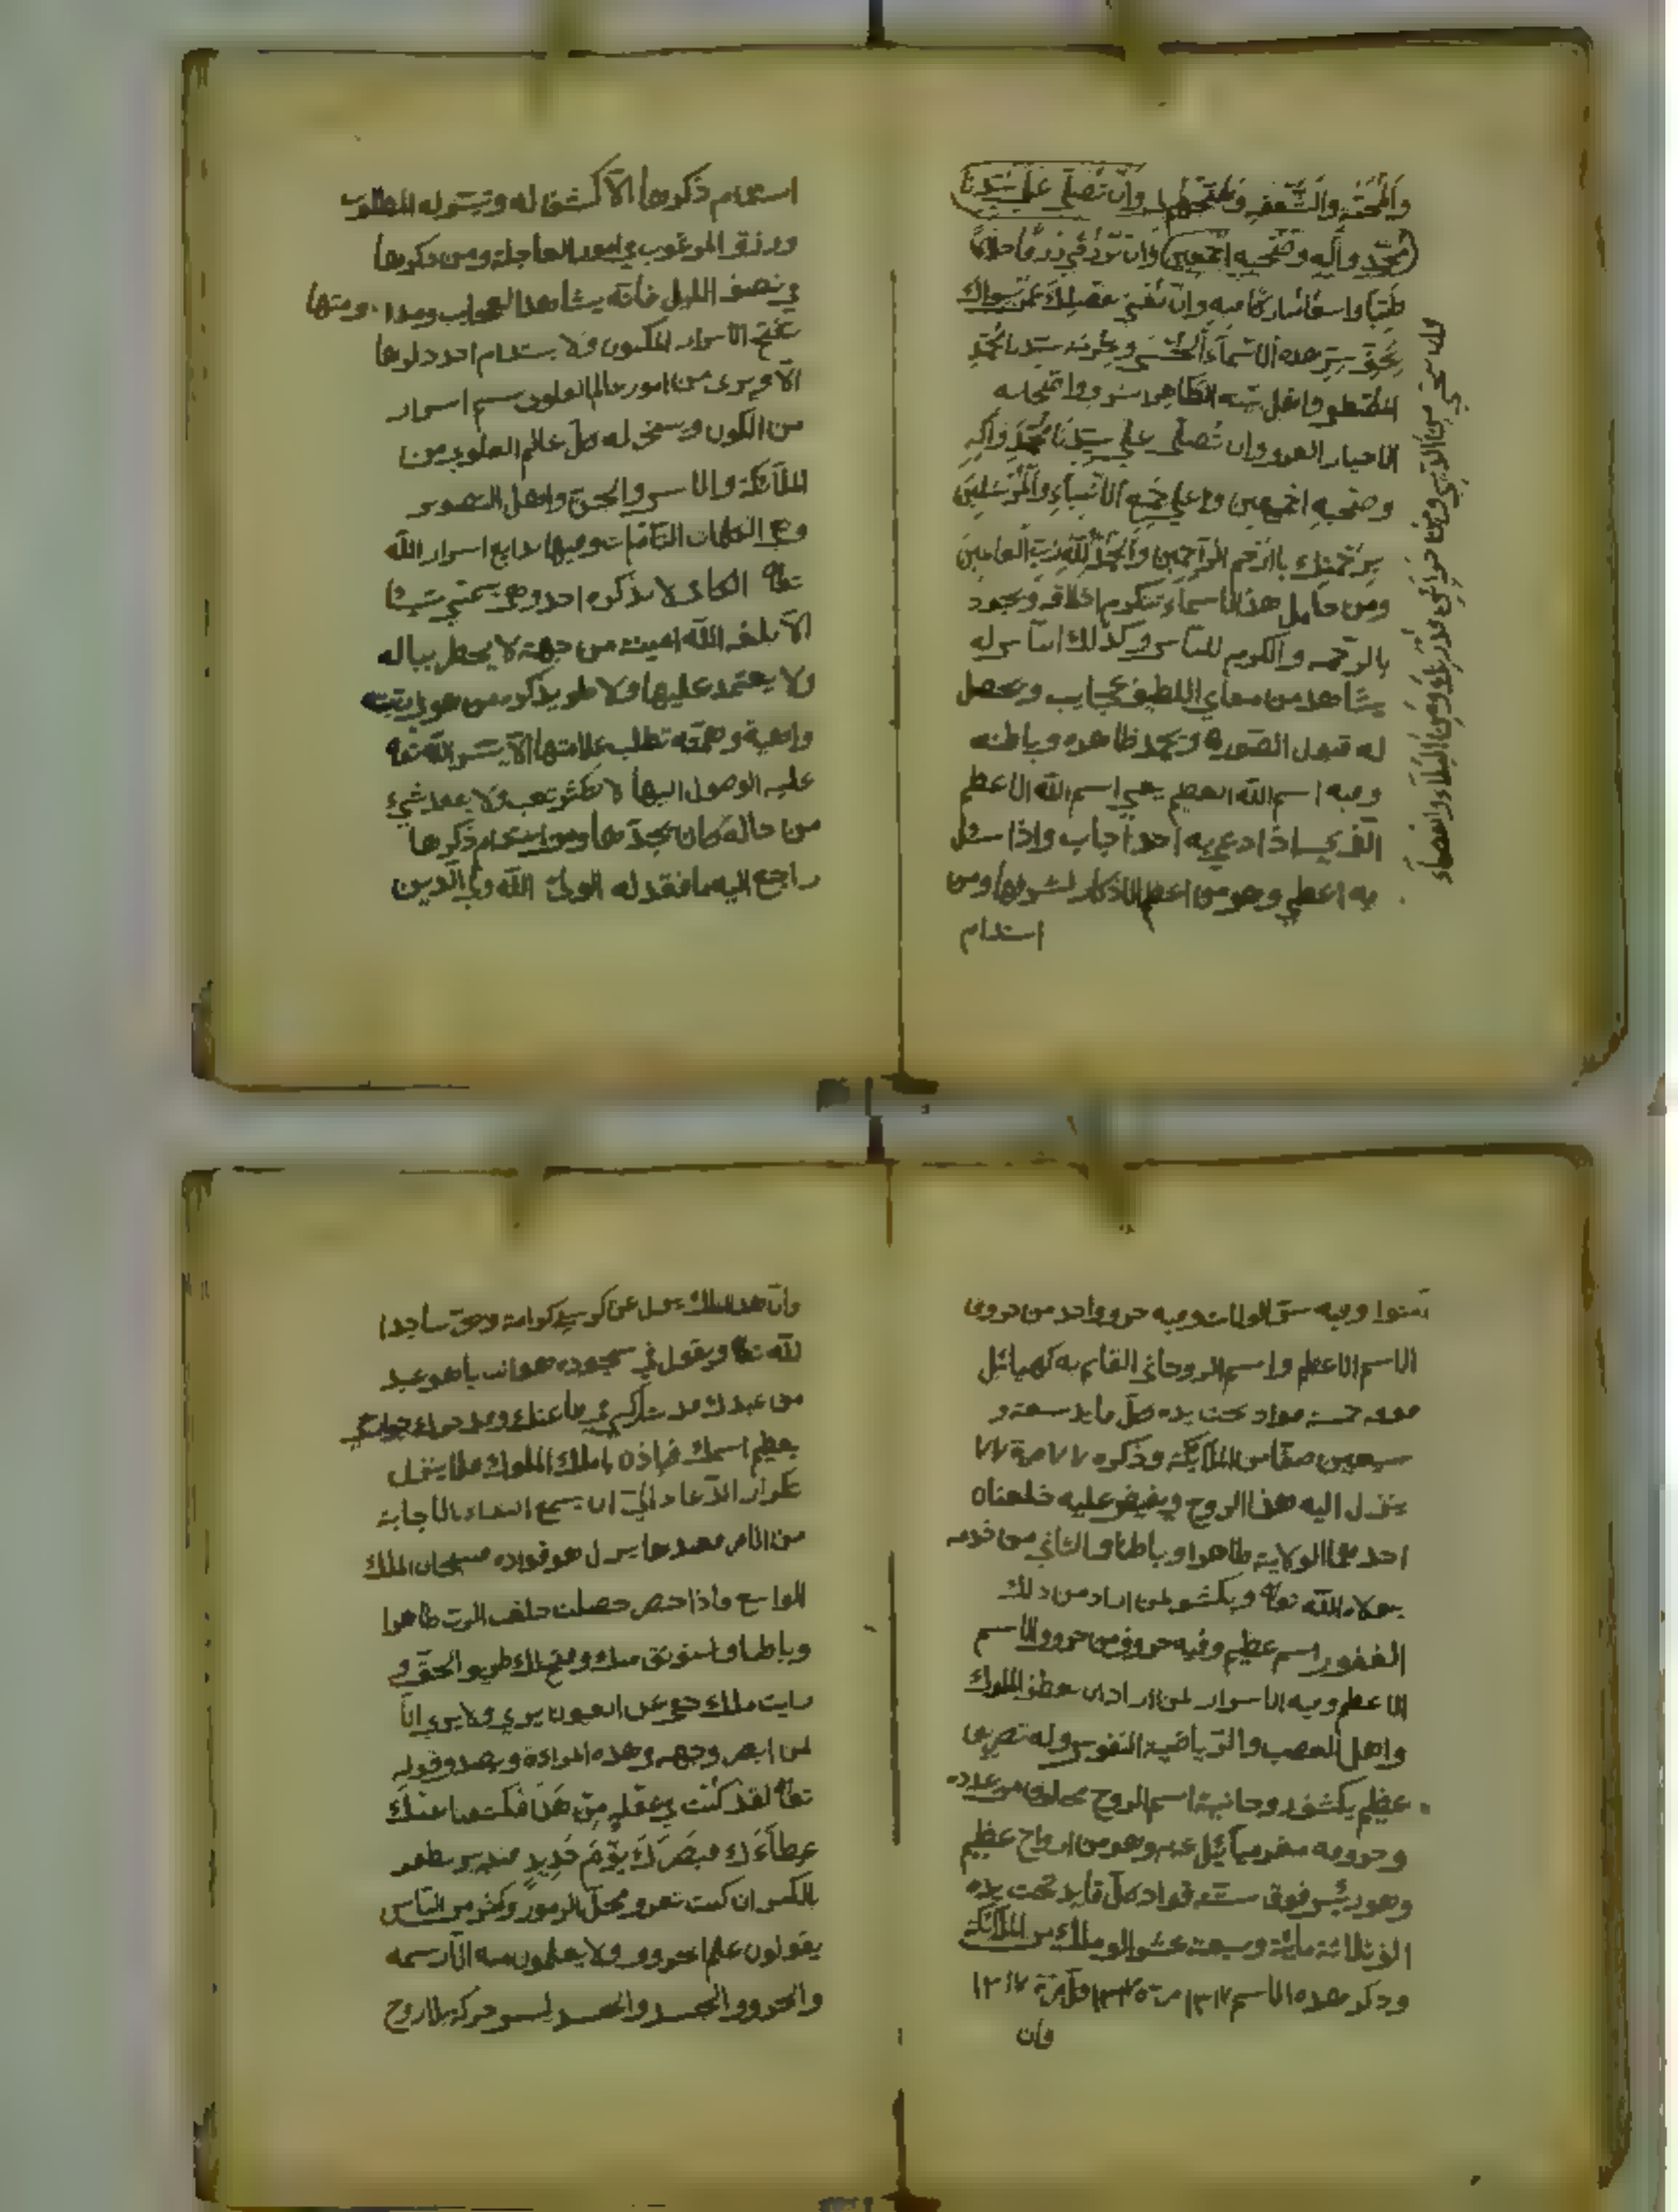 والمحبة والشغف وان تصلي على سيدنا
محمد واله وصحبه اجمعين وان ترزقني رزقا حلالا
طيبا واسعا مباركا فيه وان تغنني بفضلك عمن سواك
بحق سر هذه الاسماء الحسنى وبحرمة سيدنا محمد
المصطفى واهل بيته الطاهرين واصحابه
الاخيار وان تصلي على سيدنا محمد واله
وصحبه اجمعين وعلى جميع الانبياء والمرسلين
برحمتك يا ارحم الراحمين والحمد لله رب العالمين
ومن حامل هذه الاسماء تتكرم اخلاقه ويجود
بالرحمة والكرم للناس وكذلك الناس له
يشاهد من معاني اللطيف عجايب ويحصل
له قبول الصورة ويجد ظاهره وباطنه
وفيه اسم الله العظيم يعني اسم الله الاعظم
الذي اذا دعي به احد اجاب واذا سئل
به اعطى وهو من اعظم الاذكار لشرفها ومن
استدام
من
ومن البلاء
استدام ذكرها الا كشف له وتيسر له المطلوب
ورزق المرغوب في امور العاجلة ومن ذكرها
في نصف الليل فانه يشاهد العجايب ومنها
تفتح الاسرار المكنون ولا يستدام احد ذكرها
الا ويرى من امور عالم العلوي اسرار
من الكون ويسخر له كل عالم العلوي من
الملائكة والانس والجن واهل التصوير
وهي الكلمات التامات وفيها بدايع اسرار الله
تعالى الكافي لا يذكره احد وهو يتمنى شيئا
الا بلغه الله امنيته من جهة لا يخطر بباله
ولا يعتمد عليها ولا يذكره من هو
واهية وهمته تطلب علامتها الا يسر الله تعالى
عليه الوصول اليها لا بكثر تعب ولا بعد شيء
من حاله كان يجدها ومن استدام ذكرها
راجع اليه ما فقد له الولي الله ولي الذين
آمنوا وفيه سر الولايات وفيه حرف واحد من حروف
الاسم الاعظم واسم الروحاني القايم به كهيائيل
معه خمسة قواد تحت يده كل قايد سبعة و
سبعين صفا من الملائكة وذكره ٧٧ مرة ٧٧
ينزل اليه هذا الروح ويفيض عليه خلعتان
احدهما الولاية ظاهرا وباطنا والثاني من خدمه
يتولاه الله تعالى ويكشف لمن اراد من ذلك
الغفور اسم عظيم وفيه حروف من حروف الاسم
الاعظم وفيه الاسرار لمن اراد ان يعطف الملوك
واهل الغضب والرياضية النفوس وله تصريف
عظيم يكشف روحانية اسم الروح من عدده
وحروفه ميائيل وهو من ارواح عظيم
وهو رئيس فوق ستة قواد كل قايد تحت يده
الف ثلاثة مائة وسبعة عشر الف ملك من الملائكة
وذكر هذه الاسم ١٣١٧ مرة
وان
وان هذا الملك ينزل عن كرسي كرامة وخر ساجدا
لله تعالى ويقول في سجوده هو انت يا هو عبد
من عبدك قد شاركني في طاعتك
بعظيم اسمك فاذن يا ملك الملوك فلما ينزل
تكرار الدعاء الى ان يسمع النداء بالاجابة
من الامر فعندها ينزل هو قواده سبحان الملك
الواسع واذا حضر حصلت ظاهرا
وباطنا واستوثق منك وفتح لك طريق الحق
رايت ملك عن العيون يرى ولا يرى الا
لمن ابصر وجهه وهذه المرادة ويصدق قوله
تعالى لقد كنت في غفلة من هذا فكشفنا عنك
غطاءك فبصرك اليوم حديد
بالكسر ان كنت تعرف محل الرموز وكثر من الناس
يقولون علم الحروف ولا يعلمون منه الا رسمه
والحروف الجسد والجسد ليس حركة بلا روح